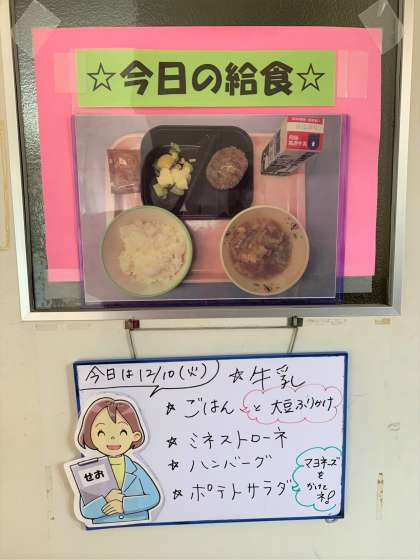 ☆今日の給食☆
今日は12/10(火)
☆牛乳
☆ごはん と大豆ふりかけ
☆ミネストローネ
☆ハンバーグ
☆ポテトサラダ
マヨネーズ
を
かけて
ネ!
せお